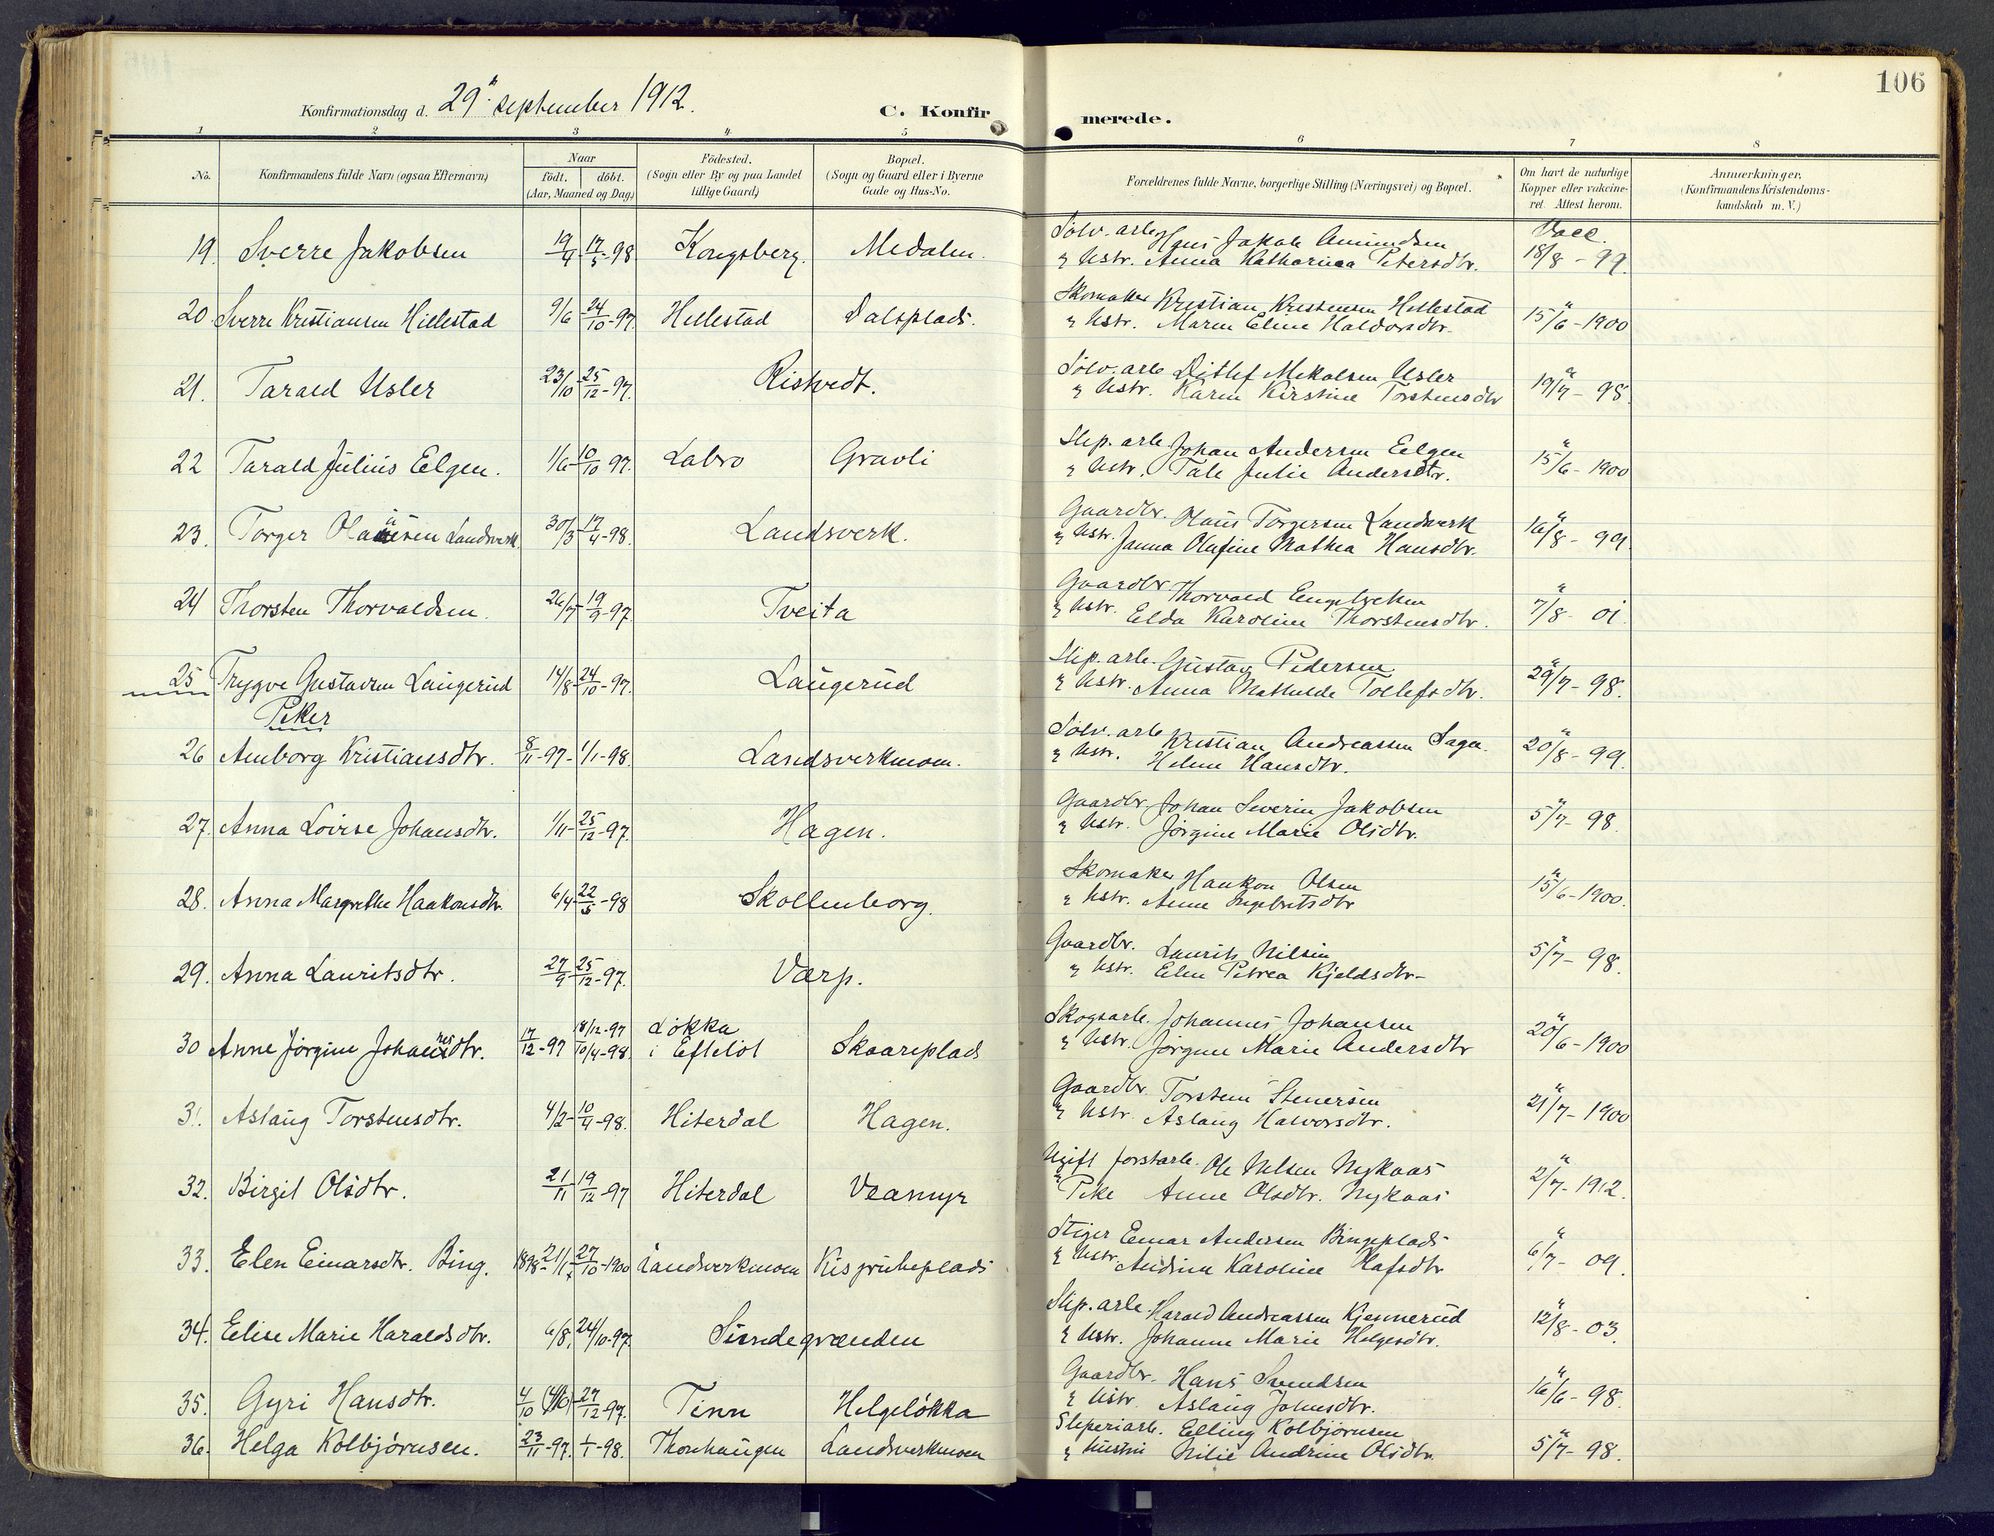 106
Konfirmationsdag d. 29 september 1912.
C. Konfirmerede.
1 2 3 4 5 6 7 8
No.
Konfirmandens fulde Navn (ogsaa Efternavn)
Naar
födt. döbt.
(Aar, Maaned og Dag)
Födested.
(Sogn eller By og paa Landet
tillige Gaard)
Bopæl.
(Sogn og Gaard eller i Byerne
Gade og Hus-No.
Forældrenes fulde Navne, borgerlige Stilling (Næringsvei) og Bopæl.
Om havt de naturlige
Kopper eller vakcine-
ret. Attest herom.
Anmærkninger.
(Konfirmandens Kristendoms-
kundskab m. V.)
19. Sverre Jakobsen 19/4 - 17/5 -98 Kongsberg. Medalen. Sølv. arb. Hans Jakob Amundsen Vacc.
" Hstr. Anna Katharina Petersdtr. 18/8 - 99.
20. Sverre Kristiansen Hillestad 9/6 - 24/10 -97. Hillestad Dalsplads. Skomaker Kristian Kristensen Hillestad
" Hstr. Maren Eline Haldorsdtr. " 15/6 - 1900
21. Tarald Usler 23/10 - 25/12 -97. Ristvedt. Sølv. arb. Ditlef Mikalsen Usler
" Hstr. Karen Kirstine Torstensdtr " 19/7 - 98.
22 Tarald Julius Eelgen. 1/6 - 10/10 -97. Labro Gravli Slip. arb. Johan Andersen Eelgen
" Hstr. Tale Julie Andersdtr. " 15/6 - 1900
23. Torger Olausen Landsverk. 30/3 - 17/4 -98. Landsverk. Gaardbr. Olaus Torgersen Landsverk
" Hstr. Janna Olufine Mathea Hansdtr. " 16/8 - 99.
24 Thorsten Thorvaldsen. 26/7 - 19/9 -97. Tveita Gaardbr Thorvald Engebretsen
" Hstr. Elda Karoline Thorstensdtr. " 7/8 - 01.
25 Trygve Gustavsen Laugerud 14/8 - 24/10 -97. Laugerud Slip. arb. Gustav Pedersen
" Hstr. Anna Mathilde Tollefsdtr. " 29/7 - 98.
Piker
26 Amborg Kristiansdtr. 8/11 -97 - 1/1 -98. Landsverkmoen. Sølv. arb Kristian Andreassen Sagen.
" Hstr. Helene Hansdtr. " 20/8 - 99.
27. Anna Lovise Johansdtr. 1/11 - 25/12 -97. Hagen. Gaardbr. Johan Severin Jakobsen
" Hstr. Jørgine Marie Olsdtr. " 5/7 - 98.
28. Anna Margrethe Haakonsdtr. 6/4 - 22/5 -98 Skollenborg. Skomaker Haakon Olsen
" Hstr. Anne Ingebretsdtr " 15/6 - 1900.
29. Anna Lauritsdtr. 27/9 - 25/12 -97. Værp. Gaardbr. Laurits Nilsen
" Hstr. Elen Petrea Kjeldsdtr- " 5/7 - 98.
30 Anne Jørgine Johannesdtr. 17/12 -97 18/12 -97 10/4 -98. Løkka i Efteløt Skaareplads Skogsarb. Johannes Johansen
" Hstr. Jørgine Marie Andersdtr " 20/6 - 1900
31. Aslaug Torstensdtr. 4/2 - 10/4 -98. Hiterdal Hagen. Gaardbr. Torstein Stenersen
" Hstr. Aslaug Halvorsdtr. " 21/7 - 1900
32. Birgit Olsdtr. 21/11 - 19/12 -97 Hiterdal Veamyr Ugift forstarb. Ole Nilsen Nykaas
" Pike Anne Olsdtr. Nykaas " 2/7 - 1912.
33. Elen Einarsdtr. Bing. 1898 - 21/1 27/10 -1900 Landsverkmoen Kisgrubeplads Stiger Einar Andersen Bingeplads
" Hstr. Andrine Karoline Olafsdtr " 6/7 - 09.
34. Elise Marie Haraldsdtr. 6/8. 24/10 -97. Sundegrænden Slip. arb. Harald Andreassen Kjennerud
" Hstr. Johanne Marie Helgesdtr. " 12/8 - 03.
35. Gyri Hansdtr. 4/10 (4/10) - 27/12 -97. Tinn Helgeløkka Gaardbr. Hans Svendsen
" Hstr. Aslaug Johnsdtr. " 16/6 - 98.
36. Helga Kolbjørnsen. 23/11 -97. 1/1 -98. Thonhaugen Landsverkmoen Sliperiarb. Elling Kolbjørnsen
" Hustru Nilie Andrine Olsdtr. " 5/7 - 98.